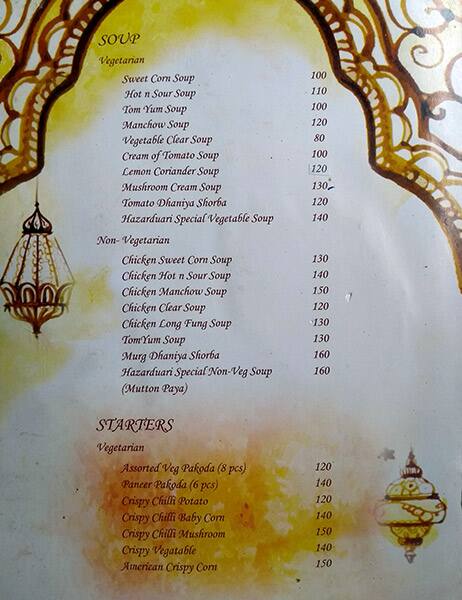 SOUP
Vegetarian
Sweet Corn Soup 100
Hot n Sour Soup 110
Tom Yum Soup 100
Manchow Soup 120
Vegetable Clear Soup 80
Cream of Tomato Soup 100
Lemon Coriander Soup 120
Mushroom Cream Soup 130
Tomato Dhaniya Shorba 120
Hazarduari Special Vegetable Soup 140
Non- Vegetarian
Chicken Sweet Corn Soup 130
Chicken Hot n Sour Soup 140
Chicken Manchow Soup 150
Chicken Clear Soup 120
Chicken Long Fung Soup 130
TomYum Soup 130
Murg Dhaniya Shorba 160
Hazarduari Special Non-Veg Soup 160
(Mutton Paya)
STARTERS
Vegetarian
Assorted Veg Pakoda (8 pcs) 120
Paneer Pakoda (6 pcs) 140
Crispy Chilli Potato 120
Crispy Chilli Baby Corn 140
Crispy Chilli Mushroom 150
Crispy Vegatable 140
American Crispy Corn 150